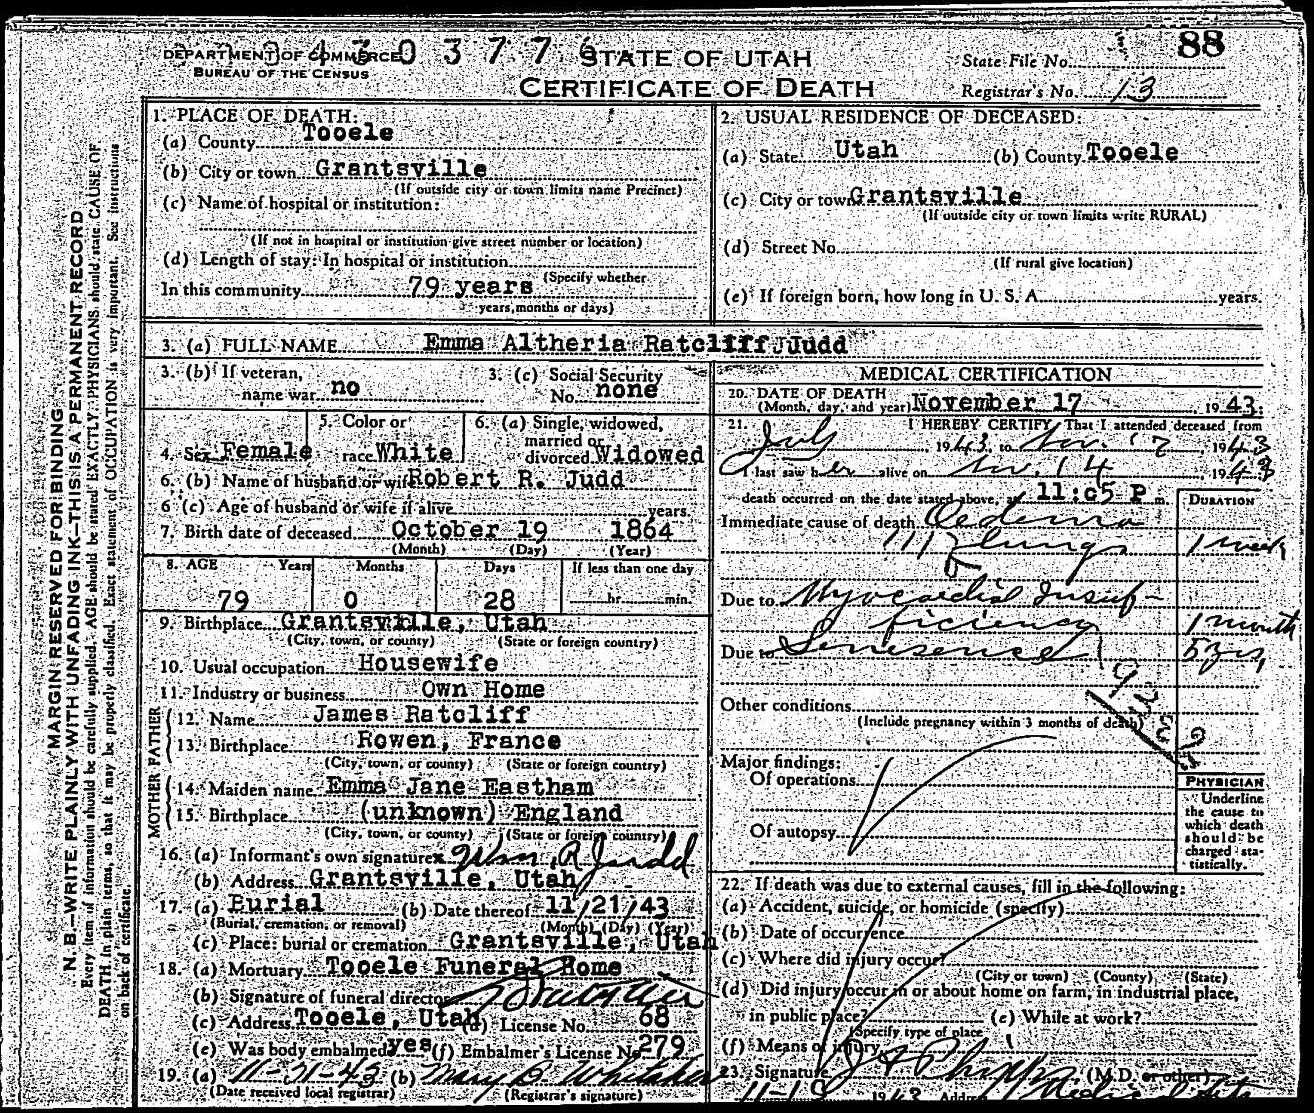 DEPARTMENT OF COMMERCE
BUREAU OF THE CENSUS
STATE OF UTAH
CERTIFICATE OF DEATH
State File No. 88
Registrar's No. 13
MARGIN RESERVED FOR BINDING
N. B.—WRITE PLAINLY WITH UNFADING INK—THIS IS A PERMANENT RECORD
Every item of information should be carefully supplied. AGE should be stated EXACTLY. PHYSICIANS should state CAUSE OF
DEATH in plain terms, so that it may be properly classified. Exact statement of OCCUPATION is very important. See instructions
on back of certificate.
1. PLACE OF DEATH:
(a) County Tooele
(b) City or town Grantsville
(If outside city or town limits name Precinct)
(c) Name of hospital or institution:
(If not in hospital or institution give street number or location)
(d) Length of stay: In hospital or institution
(Specify whether
In this community 79 years
years, months or days)
2. USUAL RESIDENCE OF DECEASED:
(a) State Utah (b) County Tooele
(c) City or town Grantsville
(If outside city or town limits write RURAL)
(d) Street No.
(If rural give location)
(e) If foreign born, how long in U. S. A. years.
3. (a) FULL NAME Emma Altheria Ratcliff Judd
3. (b) If veteran, name war no
3. (c) Social Security No. none
4. Sex Female
5. Color or race White
6. (a) Single, widowed, married or divorced Widowed
6. (b) Name of husband or wife Robert R. Judd
6 (c) Age of husband or wife if alive years.
7. Birth date of deceased October 19 1864
(Month) (Day) (Year)
8. AGE Years Months Days If less than one day
79 0 28 hr. min.
9. Birthplace Grantsville, Utah
(City, town, or county) (State or foreign country)
10. Usual occupation Housewife
11. Industry or business Own Home
FATHER
12. Name James Ratcliff
13. Birthplace Rowen, France
(City, town, or county) (State or foreign country)
MOTHER
14. Maiden name Emma Jane Eastham
15. Birthplace (unknown) England
(City, town, or county) (State or foreign country)
16. (a) Informant's own signature x Wm. R Judd
(b) Address Grantsville, Utah
17. (a) Burial (b) Date thereof 11/21/43
(Burial, cremation, or removal) (Month) (Day) (Year)
(c) Place: burial or cremation Grantsville, Utah
18. (a) Mortuary Tooele Funeral Home
(b) Signature of funeral director
(c) Address Tooele, Utah (d) License No. 68
(e) Was body embalmed yes (f) Embalmer's License No. 279
19. (a) 11-21-43 (b) Mary B. Whitaker
(Date received local registrar) (Registrar's signature)
MEDICAL CERTIFICATION
20. DATE OF DEATH
(Month, day, and year) November 17, 1943.
21. I HEREBY CERTIFY, That I attended deceased from
July 1943, to Nov. 17, 1943
I last saw her alive on Nov. 14 1943
death occurred on the date stated above, at 11:05 P m.
DURATION
Immediate cause of death Oedema
of lungs 1 week
Due to Myocardial Insuf-
ficiency 1 month
Due to Senesence 5 yrs,
Other conditions
(Include pregnancy within 3 months of death)
Major findings:
Of operations
Of autopsy
PHYSICIAN
Underline
the cause to
which death
should be
charged sta-
tistically.
22. If death was due to external causes, fill in the following:
(a) Accident, suicide, or homicide (specify)
(b) Date of occurrence
(c) Where did injury occur?
(City or town) (County) (State)
(d) Did injury occur in or about home on farm, in industrial place,
in public place? (e) While at work?
(Specify type of place
(f) Means of injury
23. Signature (M.D. or other)